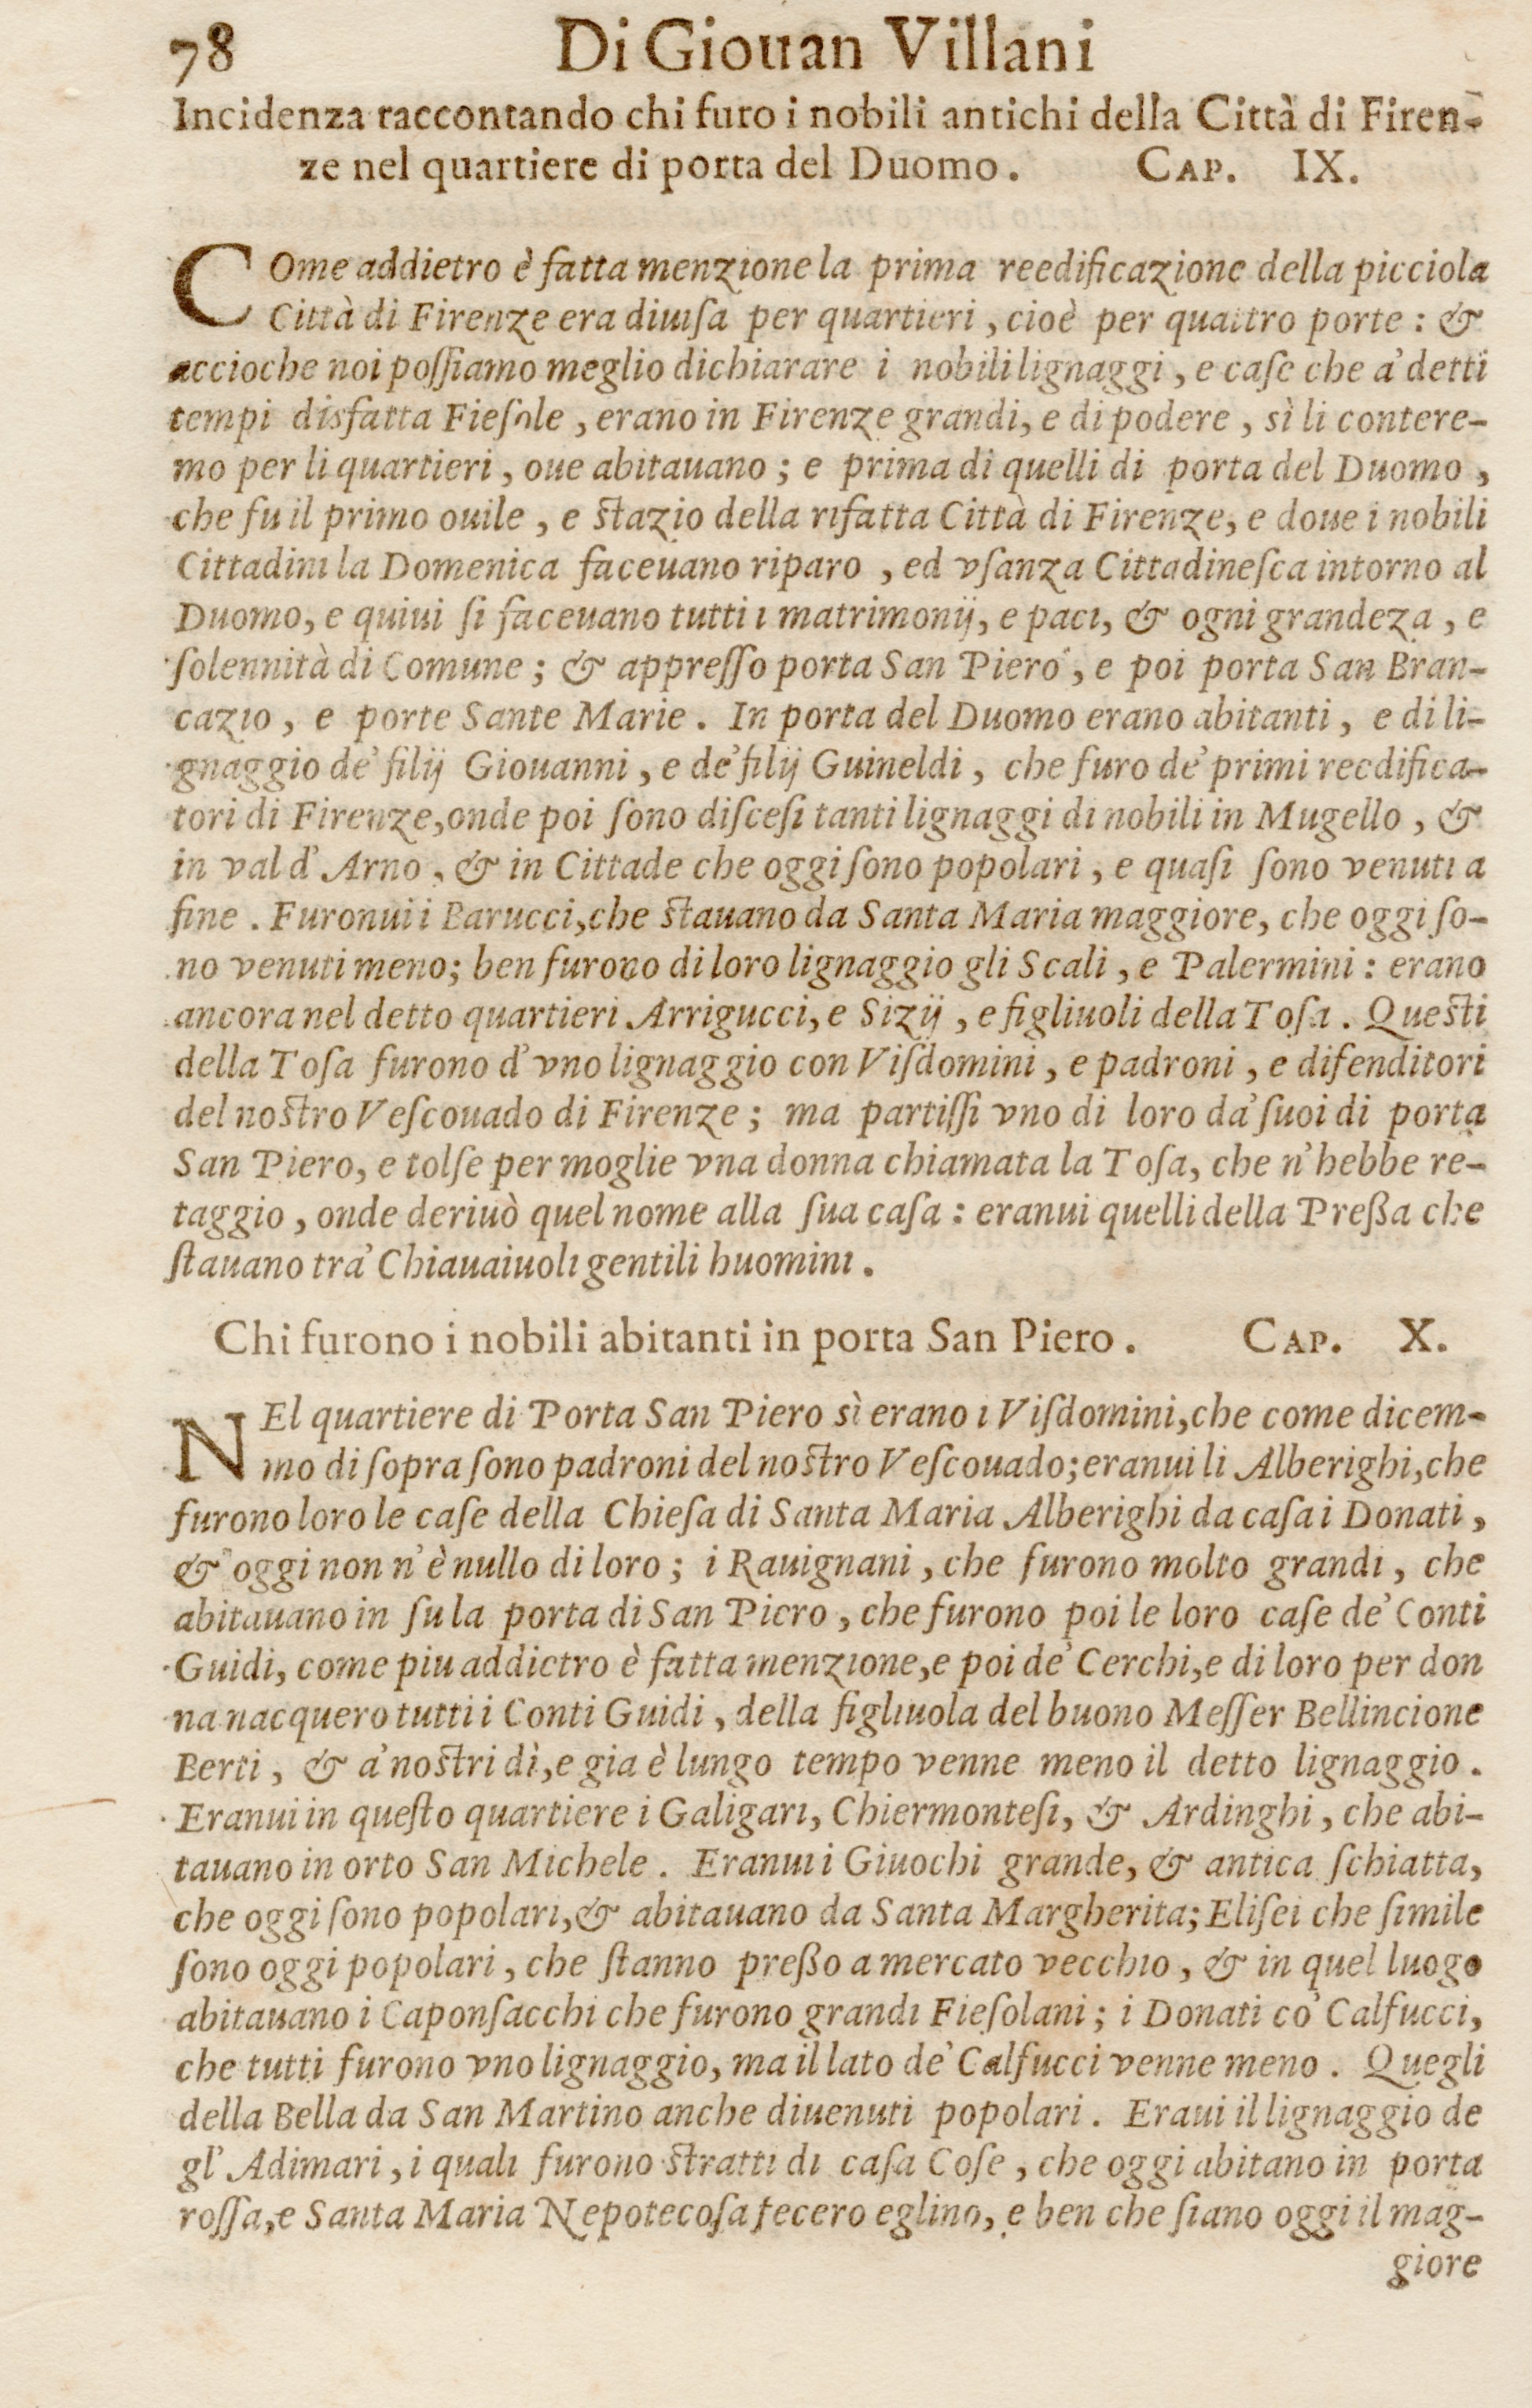 78 Di Giouan Villani
Incidenza raccontando chi furo i nobili antichi della Città di Firen-
ze nel quartiere di porta del Duomo. CAP. IX.
COme addietro è fatta menzione la prima reedificazione della picciola
Città di Firenze era diuiſa per quartieri, cioè per quattro porte: &
accioche noi poſſiamo meglio dichiarare i nobili lignaggi, e caſe che a' detti
tempi disfatta Fieſole, erano in Firenze grandi, e di podere, sì li contere-
mo per li quartieri, oue abitauano; e prima di quelli di porta del Duomo,
che fu il primo ouile, e ſtazio della rifatta Città di Firenze, e doue i nobili
Cittadini la Domenica faceuano riparo, ed vſanza Cittadineſca intorno al
Duomo, e quiui ſi faceuano tutti i matrimonij, e paci, & ogni grandeza, e
ſolennità di Comune; & appreſſo porta San Piero, e poi porta San Bran-
cazio, e porte Sante Marie. In porta del Duomo erano abitanti, e di li-
gnaggio de' filij Giouanni, e de' filij Guineldi, che furo de' primi reedifica-
tori di Firenze, onde poi ſono diſceſi tanti lignaggi di nobili in Mugello, &
in val d' Arno, & in Cittade che oggi ſono popolari, e quaſi ſono venuti a
fine. Furonui i Barucci, che ſtauano da Santa Maria maggiore, che oggi ſo-
no venuti meno; ben furono di loro lignaggio gli Scali, e Palermini: erano
ancora nel detto quartieri Arrigucci, e Sizij, e figliuoli della Toſa. Queſti
della Toſa furono d' vno lignaggio con Viſdomini, e padroni, e difenditori
del noſtro Veſcouado di Firenze; ma partiſſi vno di loro da' ſuoi di porta
San Piero, e tolſe per moglie vna donna chiamata la Toſa, che n' hebbe re-
taggio, onde deriuò quel nome alla ſua caſa: eranui quelli della Preßa che
ſtauano tra' Chiauaiuoli gentili huomini.
Chi furono i nobili abitanti in porta San Piero. CAP. X.
NEl quartiere di Porta San Piero sì erano i Viſdomini, che come dicem-
mo di ſopra ſono padroni del noſtro Veſcouado; eranui li Alberighi, che
furono loro le caſe della Chieſa di Santa Maria Alberighi da caſa i Donati,
& oggi non n' è nullo di loro; i Rauignani, che furono molto grandi, che
abitauano in ſu la porta di San Piero, che furono poi le loro caſe de' Conti
Guidi, come piu addietro è fatta menzione, e poi de' Cerchi, e di loro per don
na nacquero tutti i Conti Guidi, della figliuola del buono Meſſer Bellincione
Berti, & a' noſtri dì, e gia è lungo tempo venne meno il detto lignaggio.
Eranui in queſto quartiere i Galigari, Chiermonteſi, & Ardinghi, che abi-
tauano in orto San Michele. Eranui i Giuochi grande, & antica ſchiatta,
che oggi ſono popolari, & abitauano da Santa Margherita; Eliſei che ſimile
ſono oggi popolari, che ſtanno preßo a mercato vecchio, & in quel luogo
abitauano i Caponſacchi che furono grandi Fieſolani; i Donati co' Calfucci,
che tutti furono vno lignaggio, ma il lato de' Calfucci venne meno. Quegli
della Bella da San Martino anche diuenuti popolari. Eraui il lignaggio de
gl' Adimari, i quali furono ſtratti di caſa Coſe, che oggi abitano in porta
roſſa, e Santa Maria Nepotecoſa fecero eglino, e ben che ſiano oggi il mag-
giore